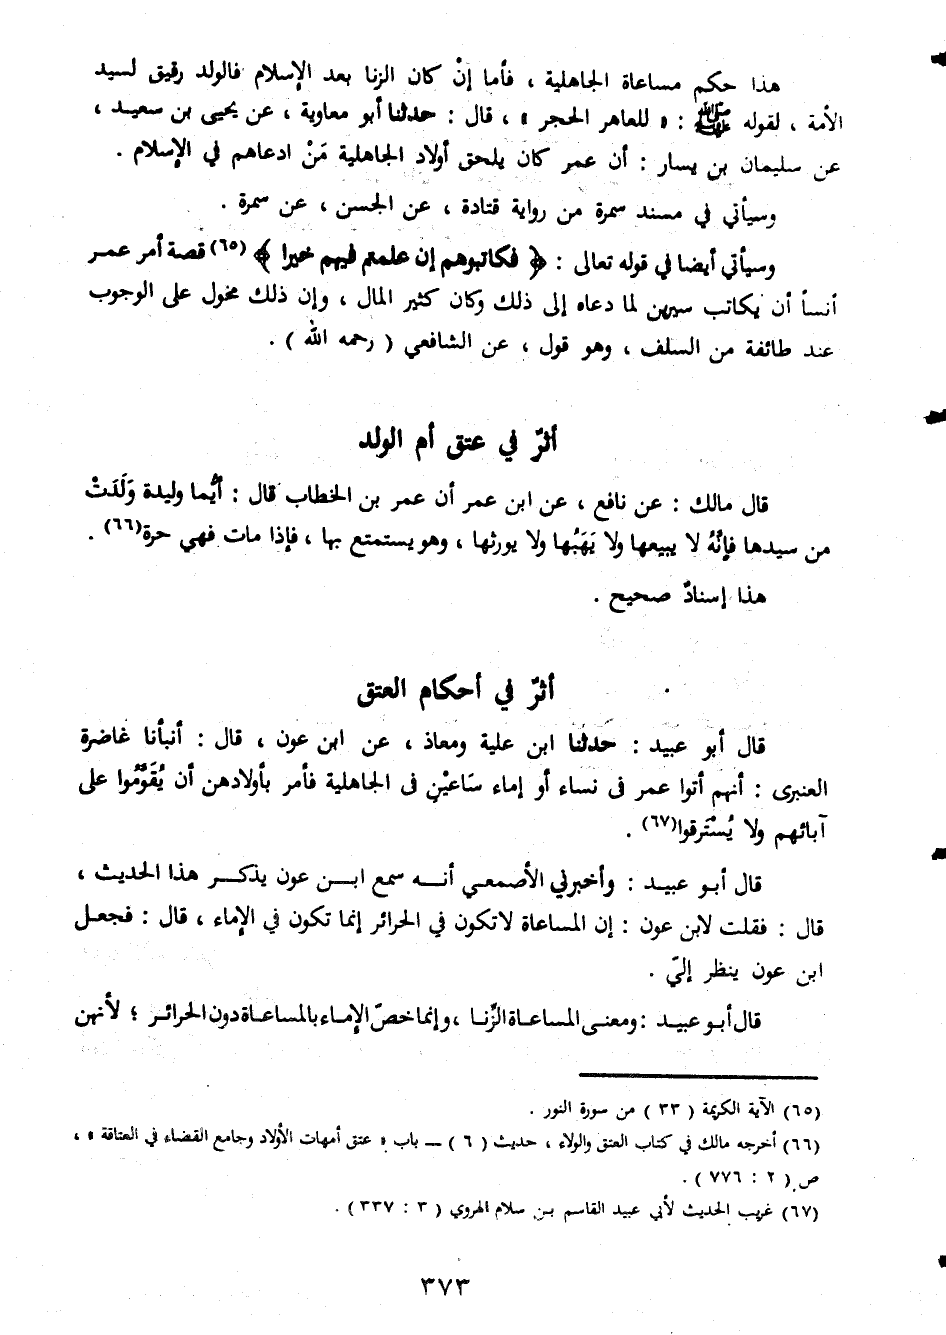 هذا حكم مساعاة الجاهلية ، فأما إنْ كان الزنا بعد الإسلام فالولد رقيق لسيد
الأمة ، لقوله ﷺ : « للعاهر الحجر » ، قال : حدثنا أبو معاوية ، عن يحيى بن سعيد ،
عن سليمان بن يسار : أن عمر كان يلحق أولاد الجاهلية مَنْ ادعاهم في الإسلام .
وسيأتي في مسند سمرة من رواية قتادة ، عن الحسن ، عن سمرة .
وسيأتي أيضا في قوله تعالى : ﴿ فكاتبوهم إن علمتم فيهم خيرا ﴾ (٦٥) قصة أمر عمر
أنساً أن يكاتب سيرين لما دعاه إلى ذلك وكان كثير المال ، وإن ذلك مخول على الوجوب
عند طائفة من السلف ، وهو قول ، عن الشافعي ( رحمه الله ) .
أثرٌ في عتق أم الولد
قال مالك : عن نافع ، عن ابن عمر أن عمر بن الخطاب قال : أيُّما وليدة وَلَدَتْ
من سيدها فإنَّهُ لا يبيعها ولا يَهَبُها ولا يورثها ، وهو يستمتع بها ، فإذا مات فهي حرة(٦٦) .
هذا إسنادٌ صحيح .
أثرٌ في أحكام العتق
قال أبو عبيد : حدثنا ابن علية ومعاذ ، عن ابن عون ، قال : أنبأنا غاضرة
العنبرى : أنهم أتوا عمر فى نساء أو إماء سَاعَيْنِ فى الجاهلية فأمر بأولادهن أن يُقَوَّمُوا على
آبائهم ولا يُسْتَرقوا(٦٧) .
قال أبو عبيد : وأخبرني الأصمعي أنه سمع ابن عون يذكر هذا الحديث ،
قال : فقلت لابن عون : إن المساعاة لاتكون في الحرائر إنما تكون في الإماء ، قال : فجعل
ابن عون ينظر إليّ .
قال أبو عبيد : ومعنى المساعاة الزِّنا ، وإنما خصّ الإماء بالمساعاة دون الحرائر ؛ لأنهن
(٦٥) الآية الكريمة ( ٣٣ ) من سورة النور .
(٦٦) أخرجه مالك في كتاب العتق والولاء ، حديث ( ٦ ) — باب « عتق أمهات الأولاد وجامع القضاء في العتاقة » ،
ص ( ٢ : ٧٧٦ ) .
(٦٧) غريب الحديث لأبي عبيد القاسم بن سلام الهروي ( ٣ : ٣٣٧ ) .
٣٧٣